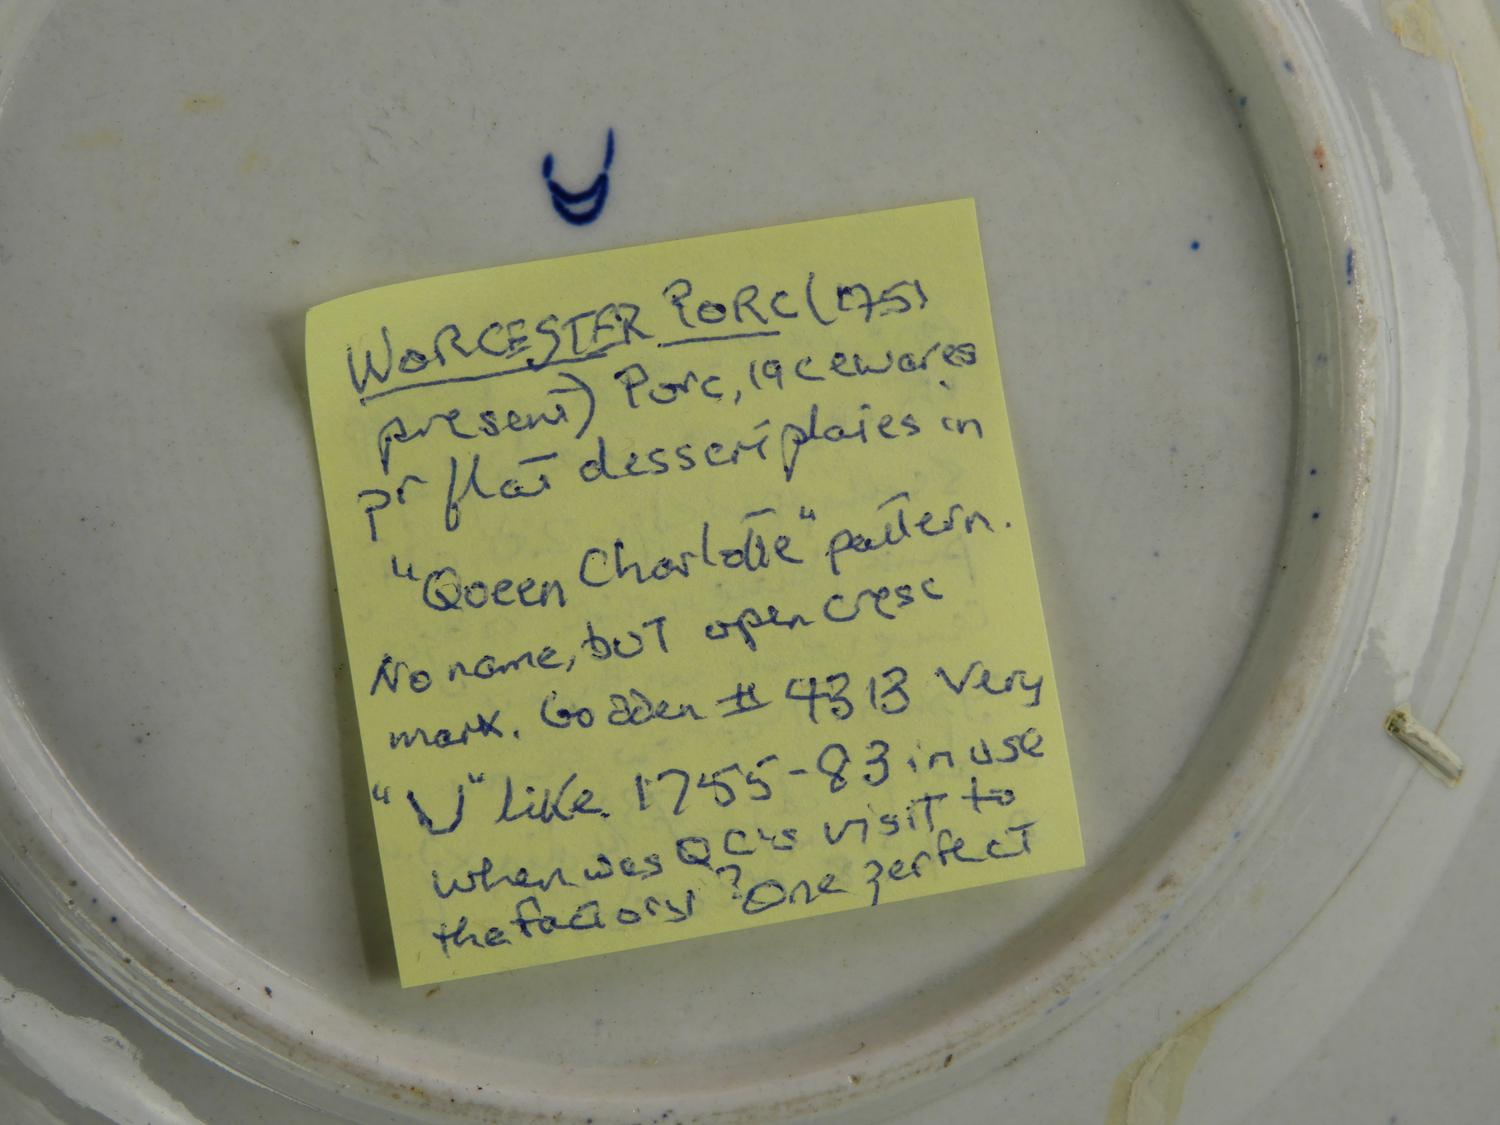 WORCESTER PORC (1751
present) Porc, 19c ewares
pr flat dessert plates in
"Queen Charlotte" pattern.
No name, but open cresc
mark. Godden # 4313 Very
"U" like. 1755-83 in use
when was QC's visit to
the factory? One perfect